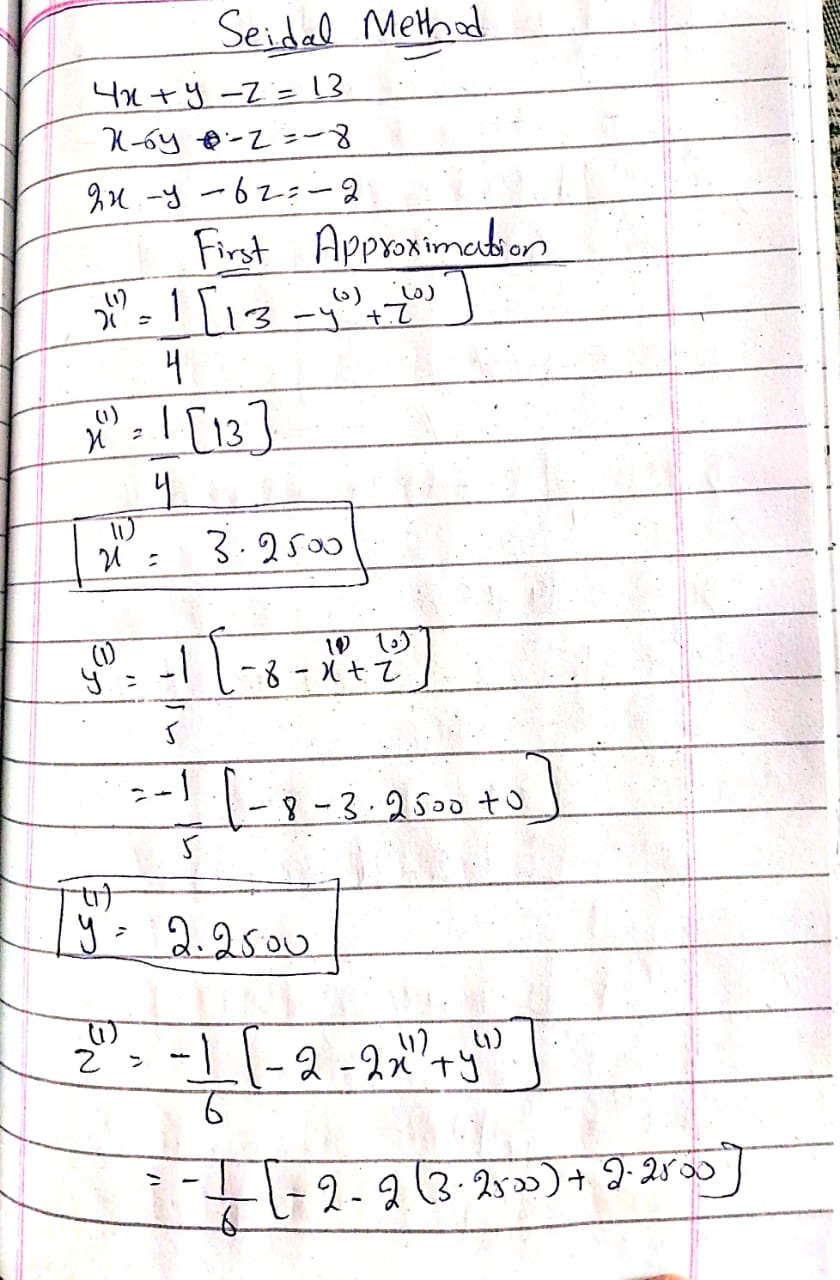 Seidal Method
4x + y - z = 13
x - 6y - z = -8
2x - y - 6z = -2
First Approximation
x⁽¹⁾ = 1/4 [13 - y⁽⁰⁾ + z⁽⁰⁾]
x⁽¹⁾ = 1/4 [13]
x⁽¹⁾ = 3.2500
y⁽¹⁾ = -1/5 [-8 - x⁽¹⁾ + z⁽⁰⁾]
= -1/5 [-8 - 3.2500 + 0]
y⁽¹⁾ = 2.2500
z⁽¹⁾ = -1/6 [-2 - 2x⁽¹⁾ + y⁽¹⁾]
= -1/6 [-2 - 2(3.2500) + 2.2500]